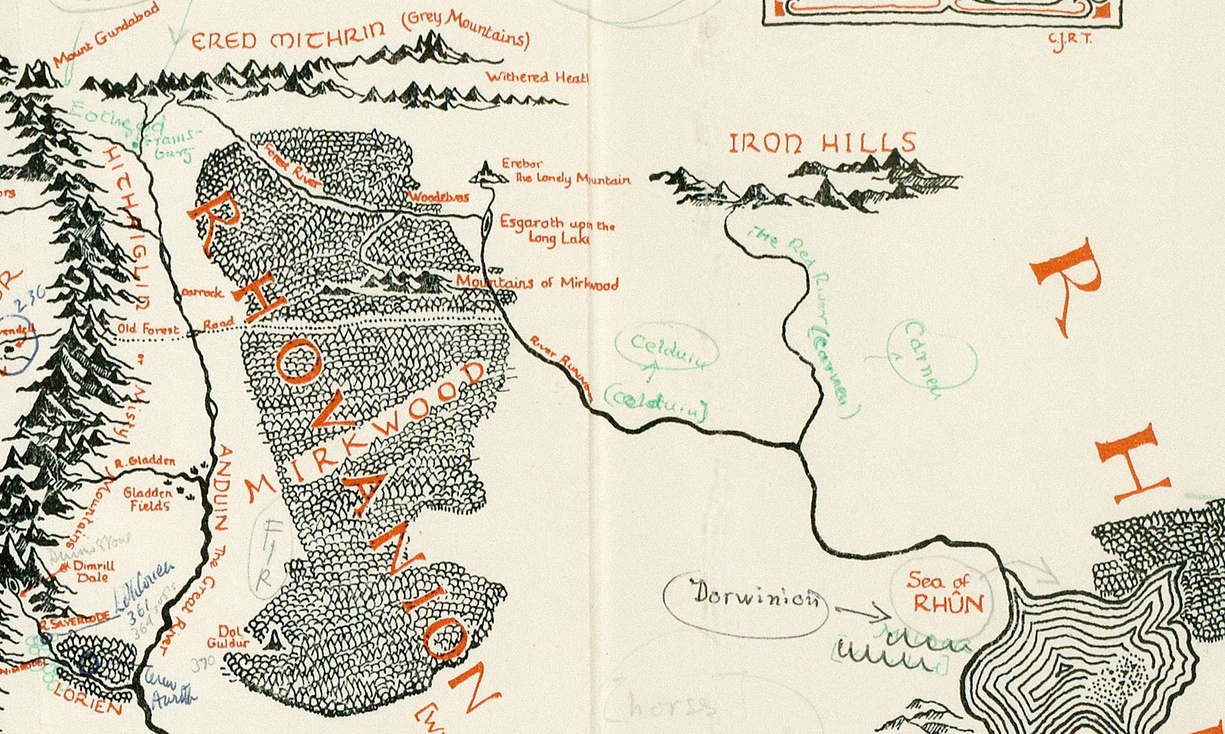 C.J.R.T.
Mount Gundabad
ERED MITHRIN (Grey Mountains)
Withered Heath
Eotheod
Framsburg
IRON HILLS
HITHAIGLIN
or
Misty
Mountains
Forest River
Woodelves
Erebor
The Lonely Mountain
Esgaroth upon the
Long Lake
Mountains of Mirkwood
Carrock
Old Forest Road
236
RHOVANION
MIRKWOOD
River Running
Celduin
(Celduin)
The Red River (Carnen)
Carnen
RH
R. Gladden
Gladden
Fields
ANDUIN The Great River
Dimrill
Dale
R. SILVERLODE
361
364
LORIEN
Dol
Guldur
390
FIR
Dorwinion
Sea of
RHÛN
[horse]